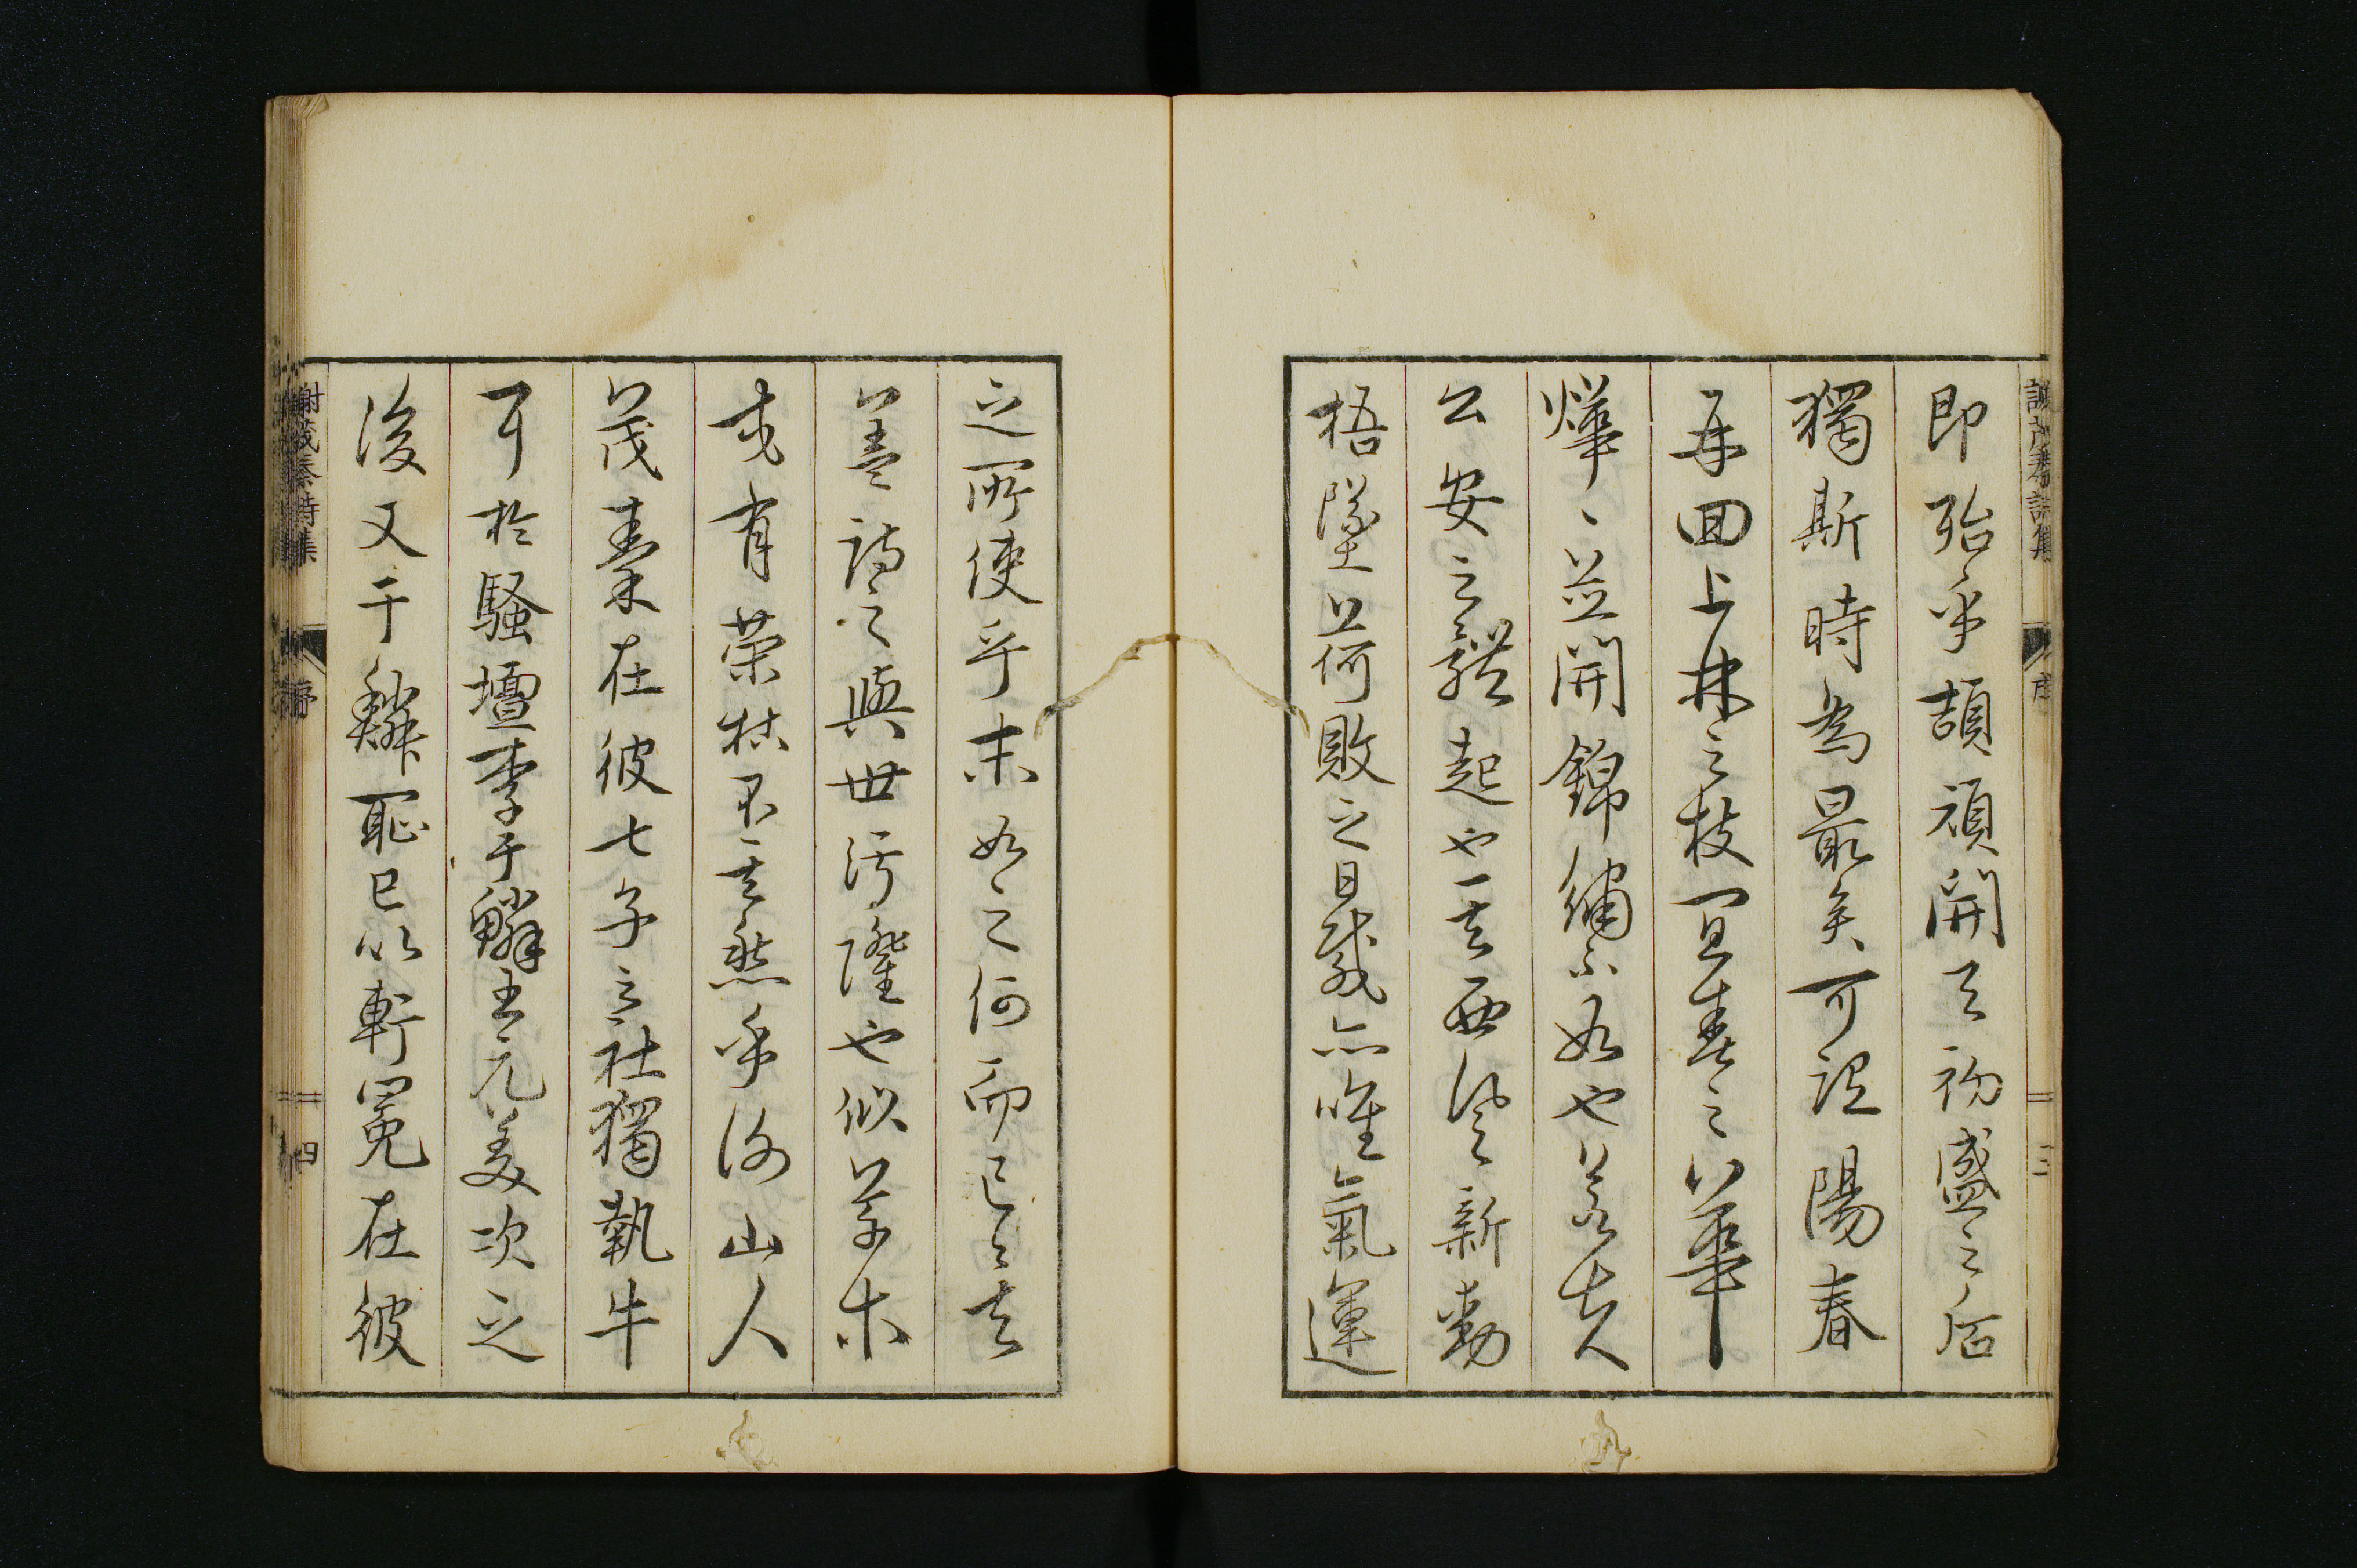 謝茂秦詩集
序
三
即殆乎頡頏開天初盛之后
獨斯時為最矣可謂陽春
再回上林之枝一旦春之華
燁〻並開錦繡不如也若夫
公安之體起也一夫西風新動
梧墜荷敗之日歲亦唯氣運
之所使乎末如之何而已〻夫
蓋詩之與世污隆也似草木
或有榮枯不其然乎謝山人
茂秦在彼七子之社獨執牛
耳於騷壇李于鱗王元美次之
後又于鱗恥已以軒冕在彼
謝茂秦詩集
序
四